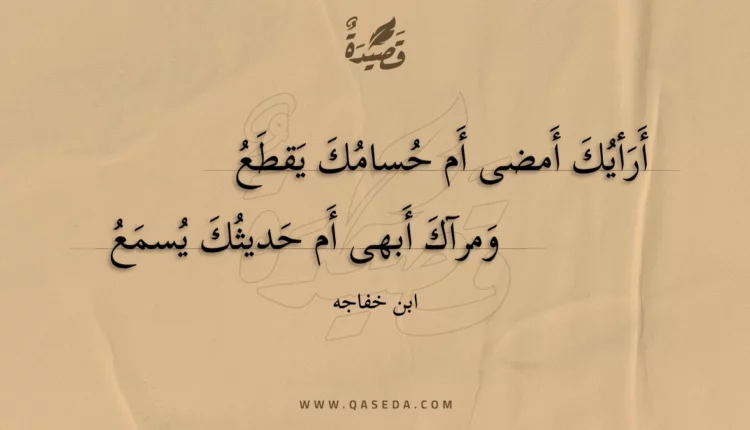 قَصِيدَةٌ
أَرَأيُكَ أَمضى أَم حُسامُكَ يَقطَعُ
وَمرآكَ أَبهى أَم حَديثُكَ يُسمَعُ
ابن خفاجه
WWW.QASEDA.COM